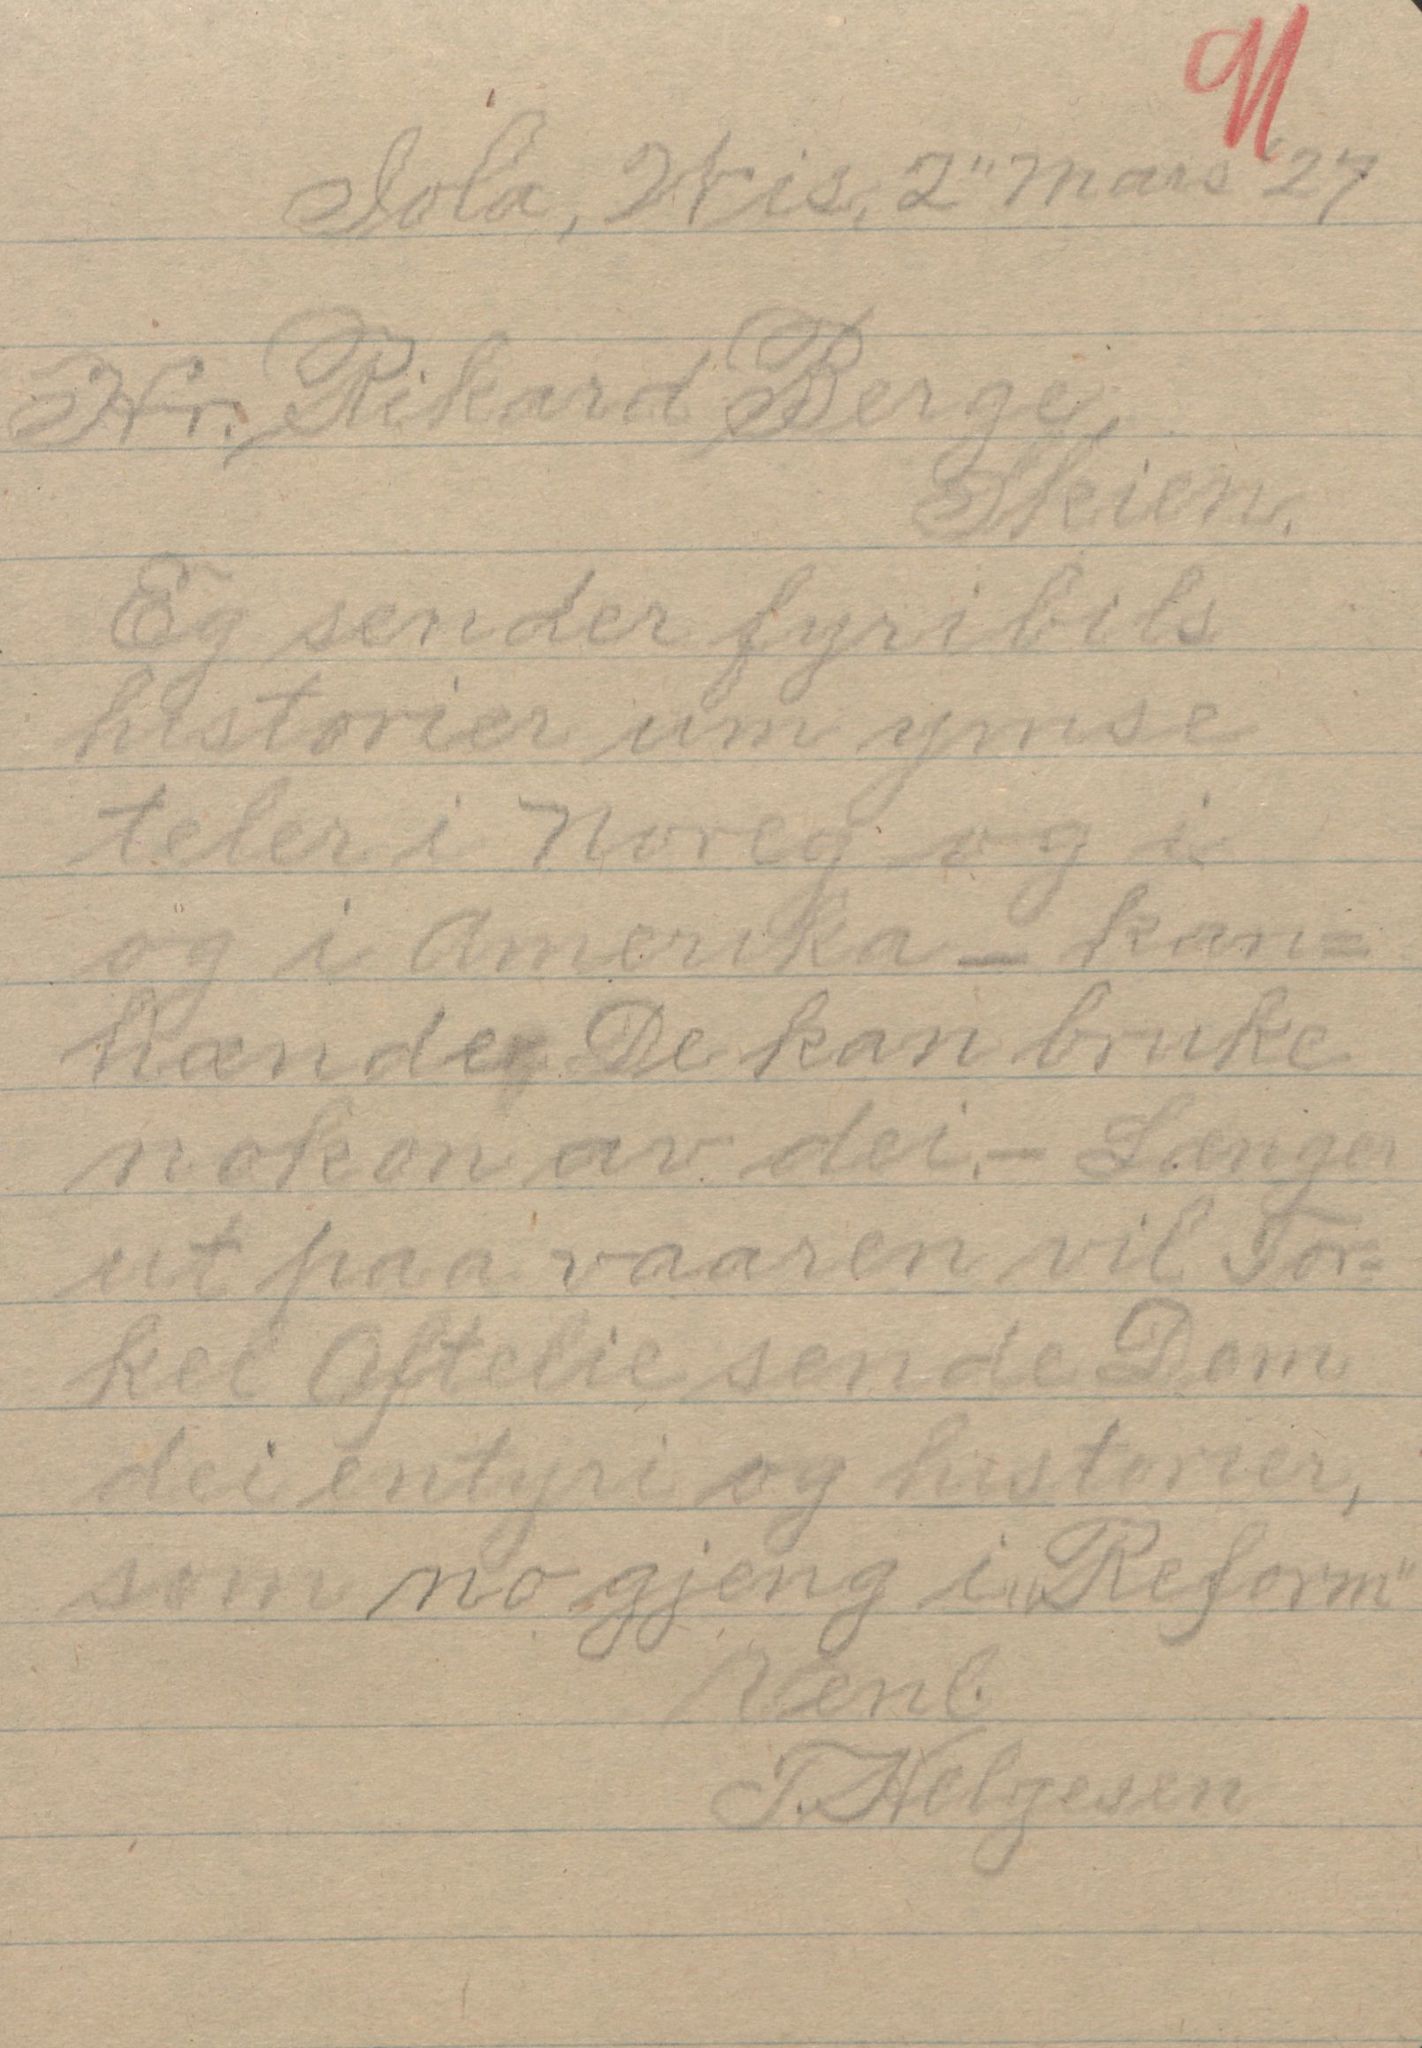 Iola, Wis, 2" Mars '27
Hr. Rikard Berge,
Skien.
Eg sender fyribils
historier um ymse
teler i Noreg og i
og i Amerika – kan=
hænde De kan bruke
nokon av dei. – Længer
ut paa vaaren vil Tor=
kel Oftelie sende Dem
dei entyri og historier,
som no gjeng i "Reform"
Venl.
T. Helgesen